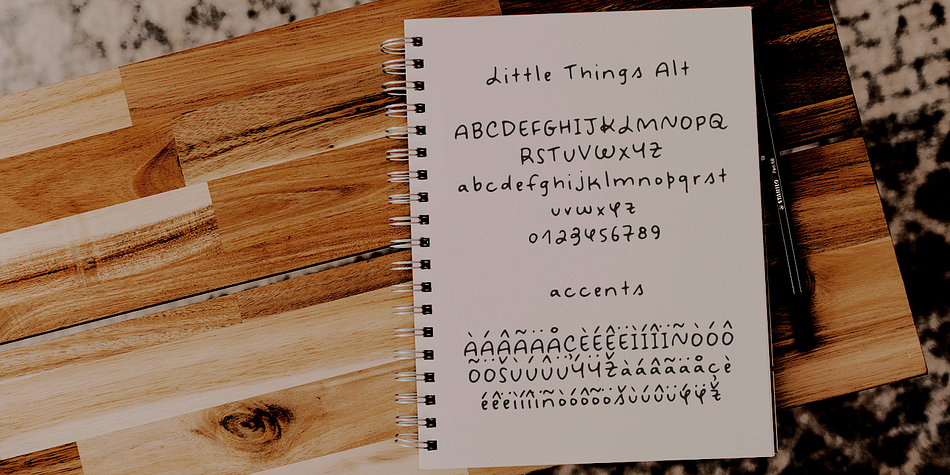 Little Things Alt
ABCDEFGHIJKLMNOPQ
RSTUVWXYZ
abcdefghijklmnopqrst
uvwxyz
0123456789
accents
ÀÁÂÃÄÅÇÈÉÊËÌÍÎÏÑÒÓÔ
ÕÖŠÙÚÛÜÝŸŽàáâãäåçè
éêëìíîïñòóôõöšùúûüýÿž
STABILO